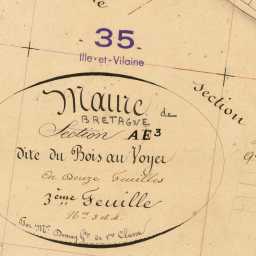 35
Ille-et-Vilaine
Section
Maire de
BRETAGNE
Section AE3
dite du Bois au Voyer
En douze Feuilles
3ème Feuille
Par Mr
de 1re Classe